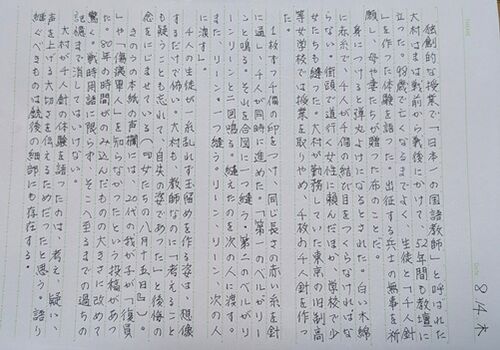 8/4 木
独創的な授業で「日本一の国語教師」と呼ばれた
大村はまは戦前から戦後にかけて、52年間も教壇に
立った。98歳で亡くなるまでよく、生徒と「千人針
」を作った体験を語った。出征する兵士の無事を祈
願し、母や妻たちが贈った布のことだ。
身につけると弾丸よけになるとされた。白い木綿
に赤糸で、千人が千個の結び目をつくらなければな
らない。街頭で道行く女性に頼んだほか、学校で少
女たちも縫った。大村が勤務していた東京の旧制高
等女学校では授業を取りやめ、千枚の千人針を作っ
た。
1枚ずつ千個の印をつけ、同じ長さの赤い糸を針
に通し、千人が同時に進めた。「第一のベルがリー
ンと鳴る。それを合図に一つ縫う。第二のベルがリ
ーンリーンと二回鳴る。縫えたのを次の人に渡す。
また、リーン。一つ縫う。リーン、リーン、次の人
に渡す」
千人の生徒が一糸乱れず玉留めを作る姿は、想像
するだけで怖い。大村も、教師なのに「考えること
も疑うことも忘れて、自失の姿であった」と後悔の
念をにじませている（『女たちの八月十五日』）。
きのうの本紙の声欄には、20代の我が子が「復員
」や「傷痍軍人」を知らなかったという投稿があっ
た。80年の時間がのみ込んだものの大きさに改めて
驚く。戦時用語に限らず、そこへ至るまでの過ちの
記憶まで消してはいけない。
大村が千人針の体験を語ったのは、考え、疑い、
声を上げる大切さを伝えるためだったと思う。語り
継ぐべきものは銃後の細部にも存在する。